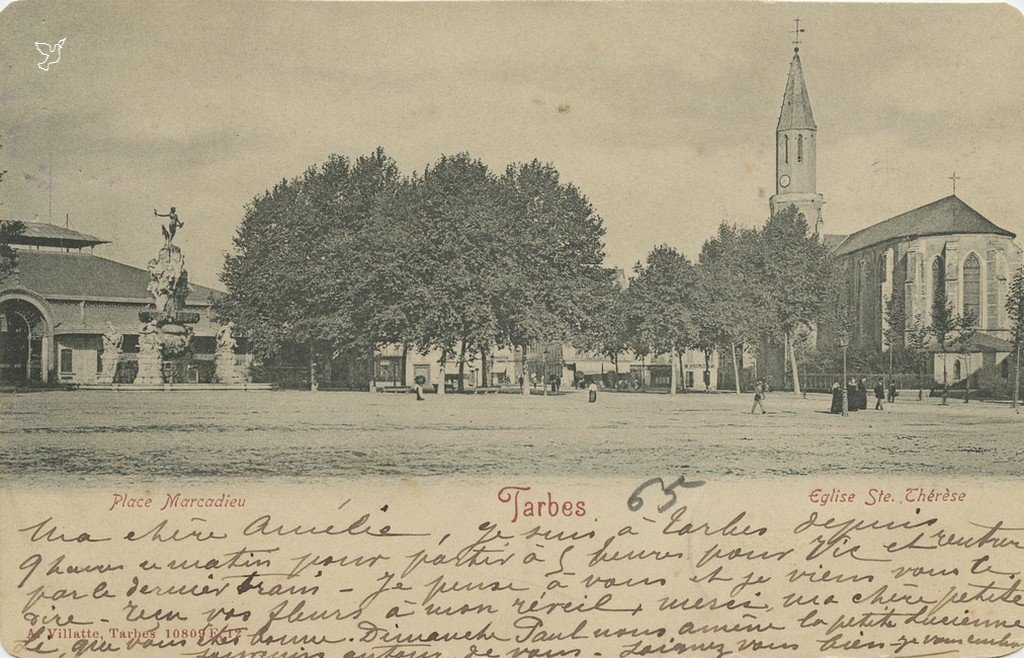 Place Marcadieu
Tarbes
65
Eglise Ste. Thérèse
Ma chère Amélie, Je suis à Tarbes depuis
9 heures du matin pour partir à 5 heures pour Vic et rentrer
par le dernier train - Je pense à vous et je viens vous le
dire - Reçu vos fleurs à mon réveil, merci, ma chère petite
A. Villatte, Tarbes 10809 E. 12
que vous bonne. Dimanche Paul nous amène la petite Lucienne
autour de vous. Soignez vous bien je vous